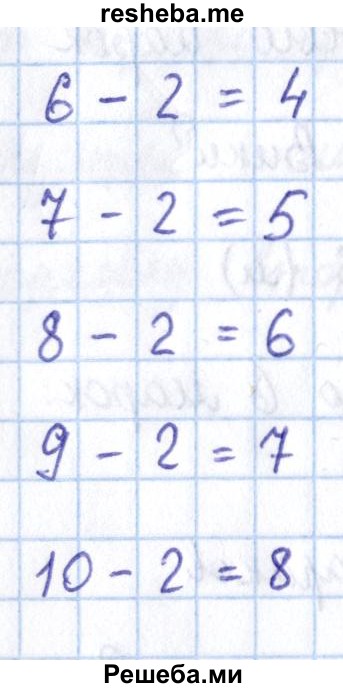 resheba.me
6 - 2 = 4
7 - 2 = 5
8 - 2 = 6
9 - 2 = 7
10 - 2 = 8
Решеба.ми